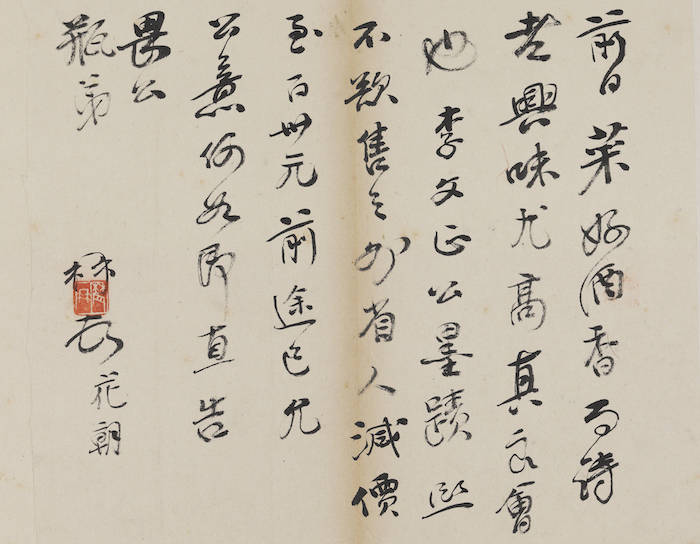 前日菜好酒香而詩
老興味尤高真良會
也 李文正公墨蹟熙
不欲售之外省人減價
至百卅元前途已允
公意何如即直告
畏公
瓶弟
花朝